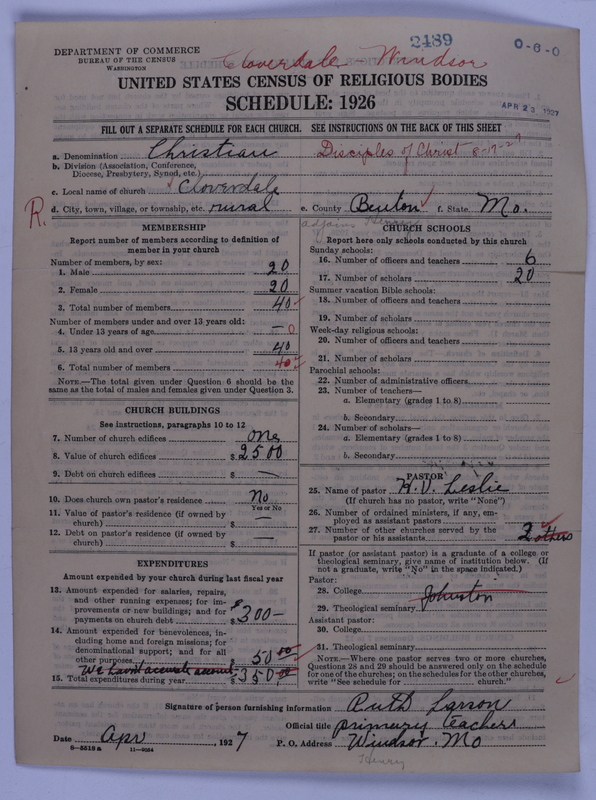 2489
0-6-0
DEPARTMENT OF COMMERCE
BUREAU OF THE CENSUS
WASHINGTON
Cloverdale - Windsor
UNITED STATES CENSUS OF RELIGIOUS BODIES
SCHEDULE: 1926
APR 23 1927
FILL OUT A SEPARATE SCHEDULE FOR EACH CHURCH. SEE INSTRUCTIONS ON THE BACK OF THIS SHEET
a. Denomination Christian Disciples of Christ 8-17-27
b. Division (Association, Conference,
Diocese, Presbytery, Synod, etc.)
c. Local name of church Cloverdale
R. d. City, town, village, or township, etc. rural e. County Benton f. State Mo.
adjoins Henry
MEMBERSHIP
Report number of members according to definition of
member in your church
Number of members, by sex:
1. Male 20
2. Female 20
3. Total number of members 40
Number of members under and over 13 years old:
4. Under 13 years of age — 0
5. 13 years old and over 40
6. Total number of members 40
NOTE.—The total given under Question 6 should be
same as the total of males and females given under Question 3.
CHURCH BUILDINGS
See instructions, paragraphs 10 to 12
7. Number of church edifices one
8. Value of church edifices $ 2500
9. Debt on church edifices $ —
10. Does church own pastor's residence No
Yes or No
11. Value of pastor's residence (if owned by
church) $ —
12. Debt on pastor's residence (if owned by
church) $ —
EXPENDITURES
Amount expended by your church during last fiscal year
13. Amount expended for salaries, repairs,
and other running expenses; for im-
provements or new buildings; and for
payments on church debt $ 300—
14. Amount expended for benevolences, in-
cluding home and foreign missions; for
denominational support; and for all
other purposes 50 00
We havn't accurate account
15. Total expenditures during year $ 350.00
CHURCH SCHOOLS
Report here only schools conducted by this church
Sunday schools:
16. Number of officers and teachers 6
17. Number of scholars 20
Summer vacation Bible schools:
18. Number of officers and teachers
19. Number of scholars
Week-day religious schools:
20. Number of officers and teachers
21. Number of scholars
Parochial schools:
22. Number of administrative officers
23. Number of teachers—
a. Elementary (grades 1 to 8)
b. Secondary
24. Number of scholars—
a. Elementary (grades 1 to 8)
b. Secondary
PASTOR
25. Name of pastor H. V. Leslie
(If church has no pastor, write "None")
26. Number of ordained ministers, if any, em-
ployed as assistant pastors
27. Number of other churches served by the
pastor or his assistants 2 others
If pastor (or assistant pastor) is a graduate of a college or
theological seminary, give name of institution below. (If
not a graduate, write "No" in the space indicated.)
Pastor:
28. College
Johnston
29. Theological seminary
Assistant pastor:
30. College
31. Theological seminary
NOTE.—Where one pastor serves two or more churches,
Questions 28 and 29 should be answered only on the schedule
for one of the churches; on the schedules for the other churches,
write "See schedule for church."
Signature of person furnishing information Ruth Larson
Official title primary teacher
Date Apr, 1927 P. O. Address Windsor, Mo
8-5518a 11-9054
Henry